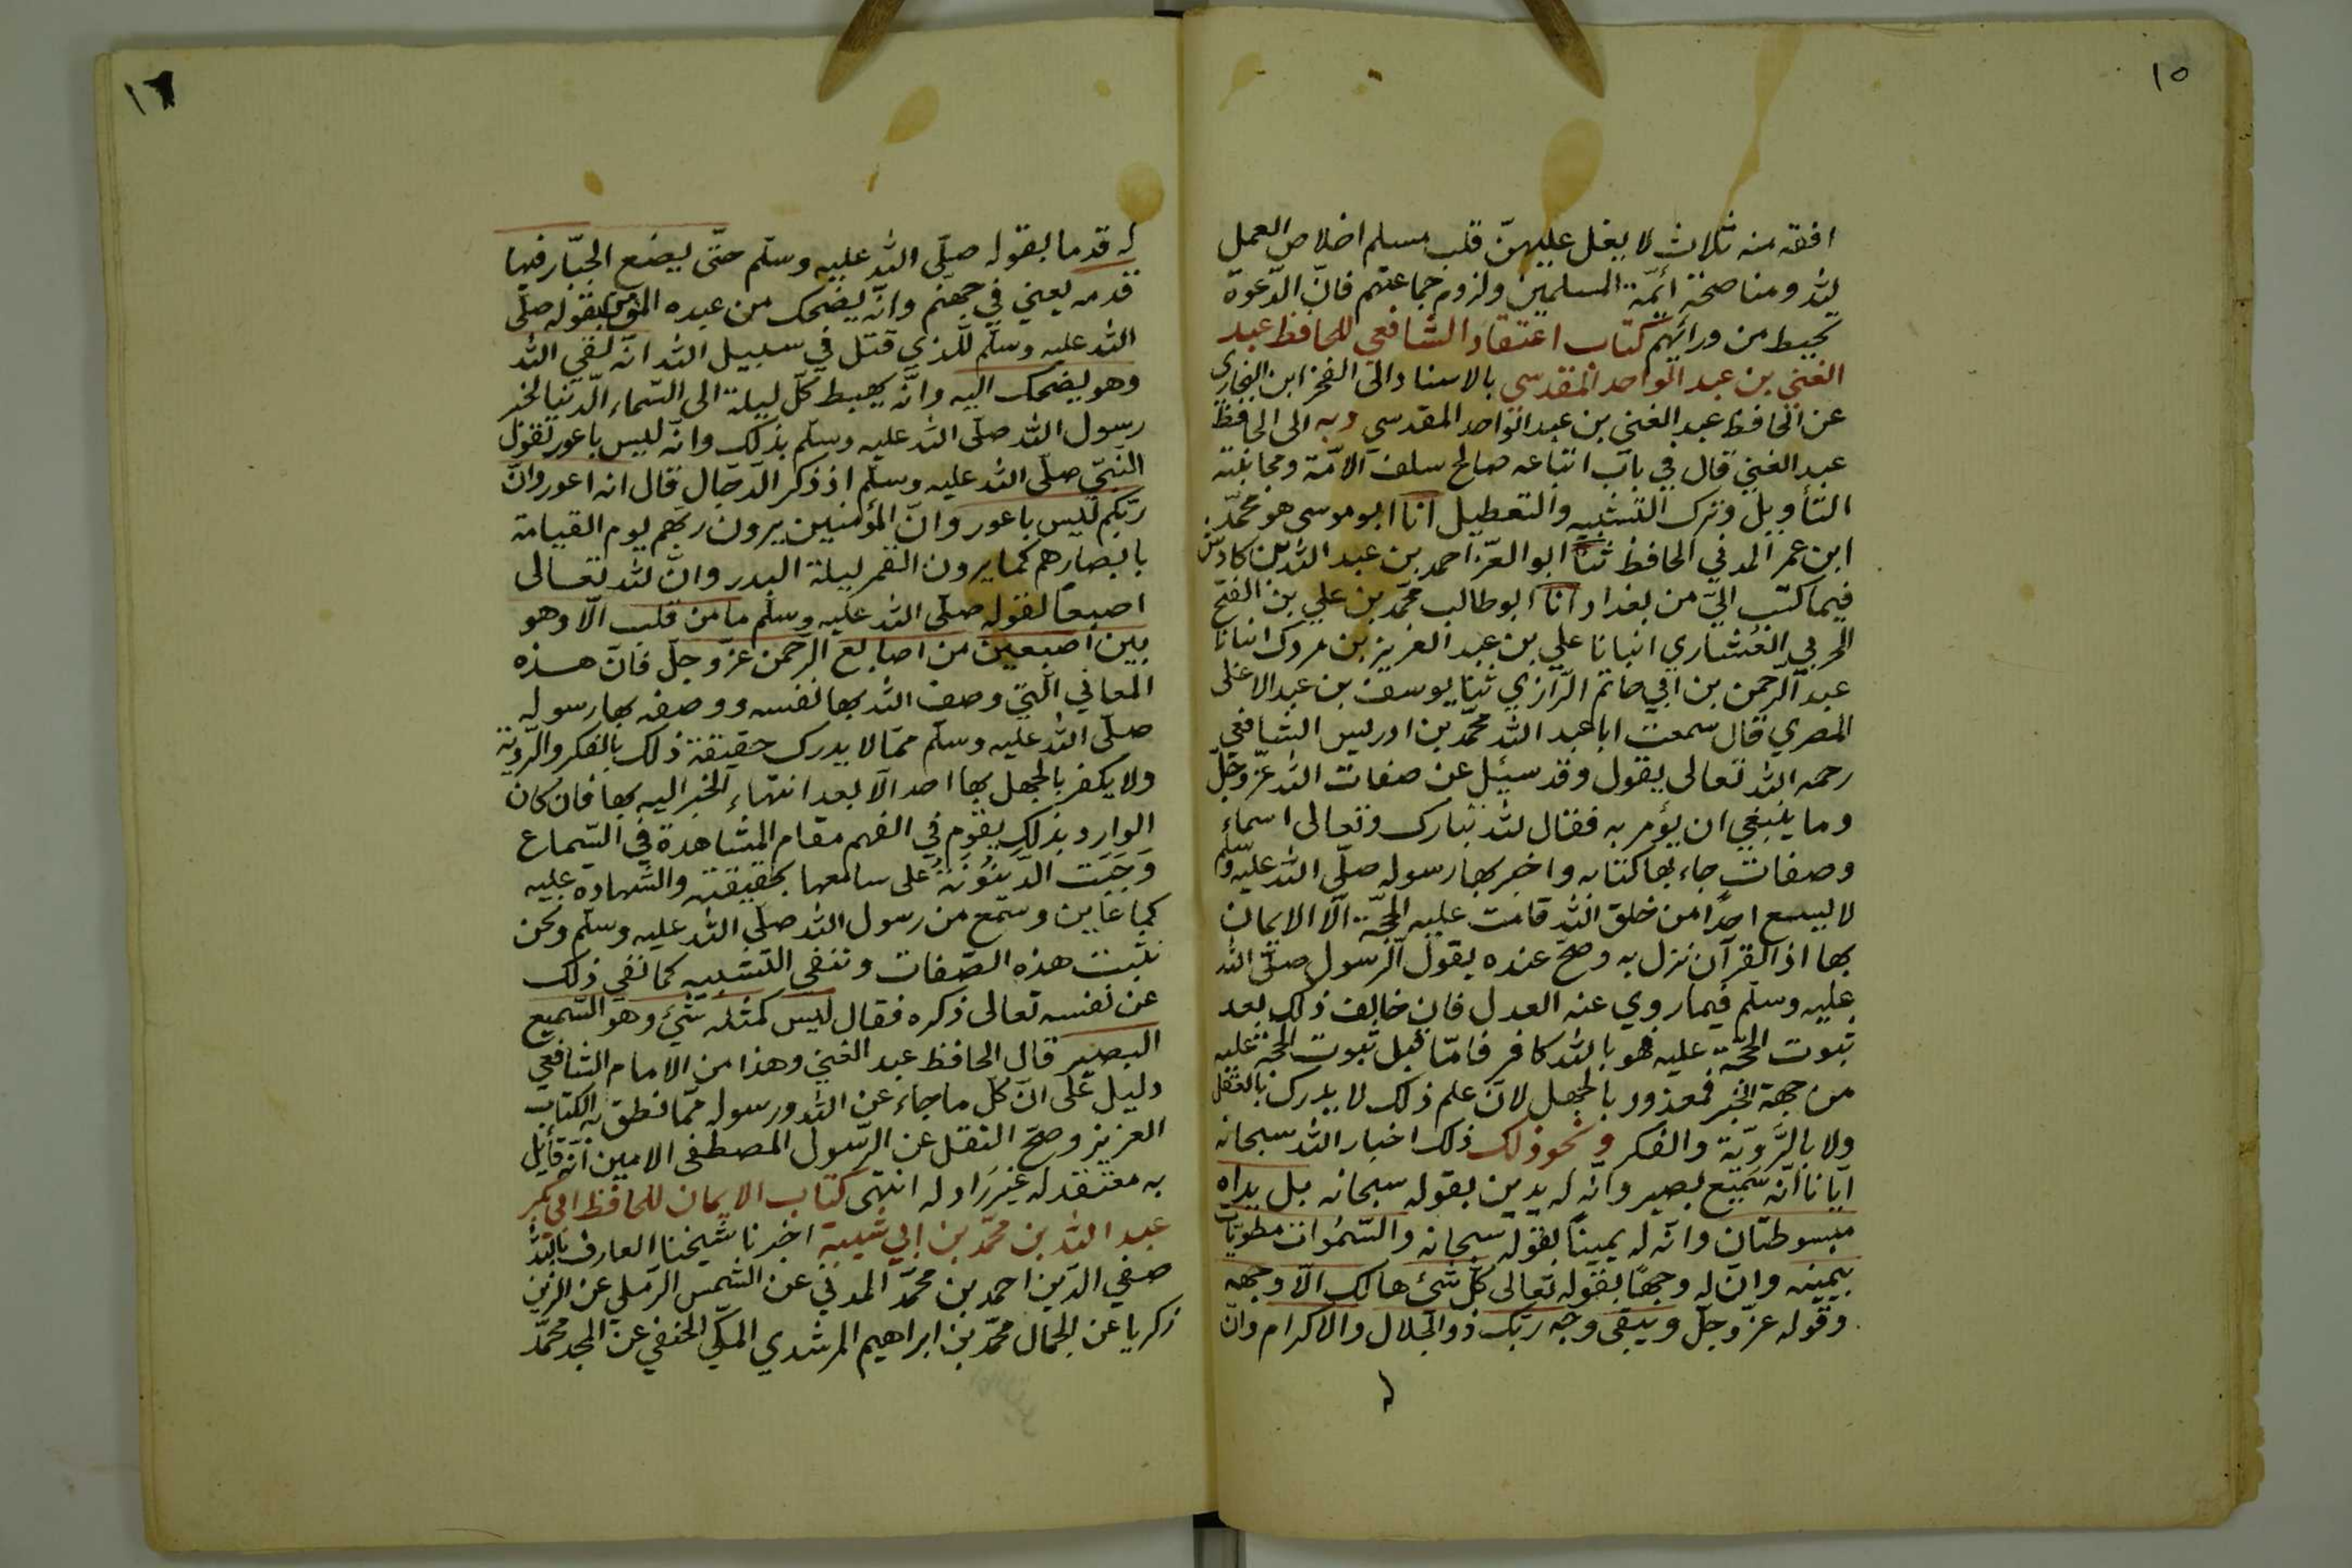 ١٥
افقه منه ثلاث لا يغل عليهنّ قلب مسلم اخلاص العمل
لله ومناصحة أئمّة المسلمين ولزوم جماعتهم فانّ الدّعوة
تحيط من ورائهم كتاب اعتقاد الشافعي للحافظ عبد
الغني بن عبد الواحد المقدسي بالاسناد الى الفخر ابن البخاري
عن الحافظ عبد الغني بن عبد الواحد المقدسي وبه الى الحافظ
عبد الغني قال في باب اتباعه صالح سلف الامّة ومجانبته
التأويل وترك التشبيه والتعطيل انا ابو موسى هو محمّد
ابن عمر المدني الحافظ ثنا ابو العزّ احمد بن عبد الله بن كادش
فيما كتب اليّ من بغداد انا ابو طالب محمّد بن علي بن الفتح
الحربي العشاري انبانا علي بن عبد العزيز بن مردك انبانا
عبد الرّحمن بن ابي حاتم الرّازي ثنا يوسف بن عبد الاعلى
المصري قال سمعت ابا عبد الله محمّد بن ادريس الشافعي
رحمه الله تعالى يقول وقد سيئل عن صفات الله عزّ وجلّ
وما ينبغي ان يؤمر به فقال لله تبارك وتعالى اسماء
وصفات جاء بها كتابه واخبر بها رسوله صلّى الله عليه وسلّم
لا يسع احدًا من خلق الله قامت عليه الحجّة الّا الايمان
بها اذ القرآن نزل به وصحّ عنده بقول الرسول صلّى الله
عليه وسلّم فيما روي عنه العدل فان خالف ذلك بعد
ثبوت الحجّة عليه فهو بالله كافر فامّا قبل ثبوت الحجّة عليه
من جهة الخبر فمعذور بالجهل لانّ علم ذلك لا يدرك بالعقل
ولا بالرَّويّة والفكر ونحو ذلك ذلك اخبار الله سبحانه
ايّانا انّه سميع بصير وانّه له يدين بقوله سبحانه بل يداه
مبسوطتان وانّه له يمينًا بقوله سبحانه والسّموات مطويّات
بيمينه وانّ له وجهًا بقوله تعالى كلّ شيء هالك الّا وجهه
وقوله عزّ وجلّ ويبقى وجه ربّك ذو الجلال والاكرام وانّ
له
١٦
له قدما بقوله صلّى الله عليه وسلّم حتّى يضع الجبّار فيها
قدمه يعني في جهنّم وانّه يضحك من عبده المؤمن بقوله صلّى
الله عليه وسلّم للّذي قتل في سبيل الله انّه لقي الله
وهو يضحك اليه وانّه يهبط كلّ ليلة الى السّماء الدّنيا لخبر
رسول الله صلّى الله عليه وسلّم بذلك وانّه ليس باعور لقول
النّبيّ صلّى الله عليه وسلّم اذ ذكر الدّجّال قال انه اعور وانّ
ربّكم ليس باعور وانّ المؤمنين يرون ربّهم يوم القيامة
بابصارهم كما يرون القمر ليلة البدر وانّ لله تعالى
اصبعًا لقوله صلّى الله عليه وسلّم ما من قلب الّا وهو
بين اصبعين من اصابع الرّحمن عزّ وجلّ فانّ هذه
المعاني الّتي وصف الله بها نفسه ووصفه بها رسوله
صلّى الله عليه وسلّم ممّا لا يدرك حقيقة ذلك بالفكر والرّويّة
ولا يكفر بالجهل بها احد الّا بعد انتهاء الخبر اليه بها فان كان
الوارد بذلك يقوم في الفهم مقام المشاهدة في السّماع
وَجَبَت الدّينُونَةُ على سامعها بحقيقته والشّهادة عليه
كما عاين وسمع من رسول الله صلّى الله عليه وسلّم ونحن
نثبت هذه الصّفات وننفي التّشبيه كما نفى ذلك
عن نفسه تعالى ذكره فقال ليس كمثله شيء وهو السّميع
البصير قال الحافظ عبد الغني وهذا من الامام الشافعي
دليل على انّ كلّ ما جاء عن الله ورسوله ممّا نطق به الكتاب
العزيز وصحّ النقل عن الرّسول المصطفى الامين انّه قايل
به معتقد له غير رادّ له انتهى كتاب الايمان للحافظ ابي بكر
عبد الله بن محمّد بن ابي شيبة اخبرنا شيخنا العارف بالله
صفي الدّين احمد بن محمّد المدني عن الشمس الرّملي عن الزين
زكريا عن الجمال محمّد بن ابراهيم المرشدي المكّي الحنفي عن المجد محمّد